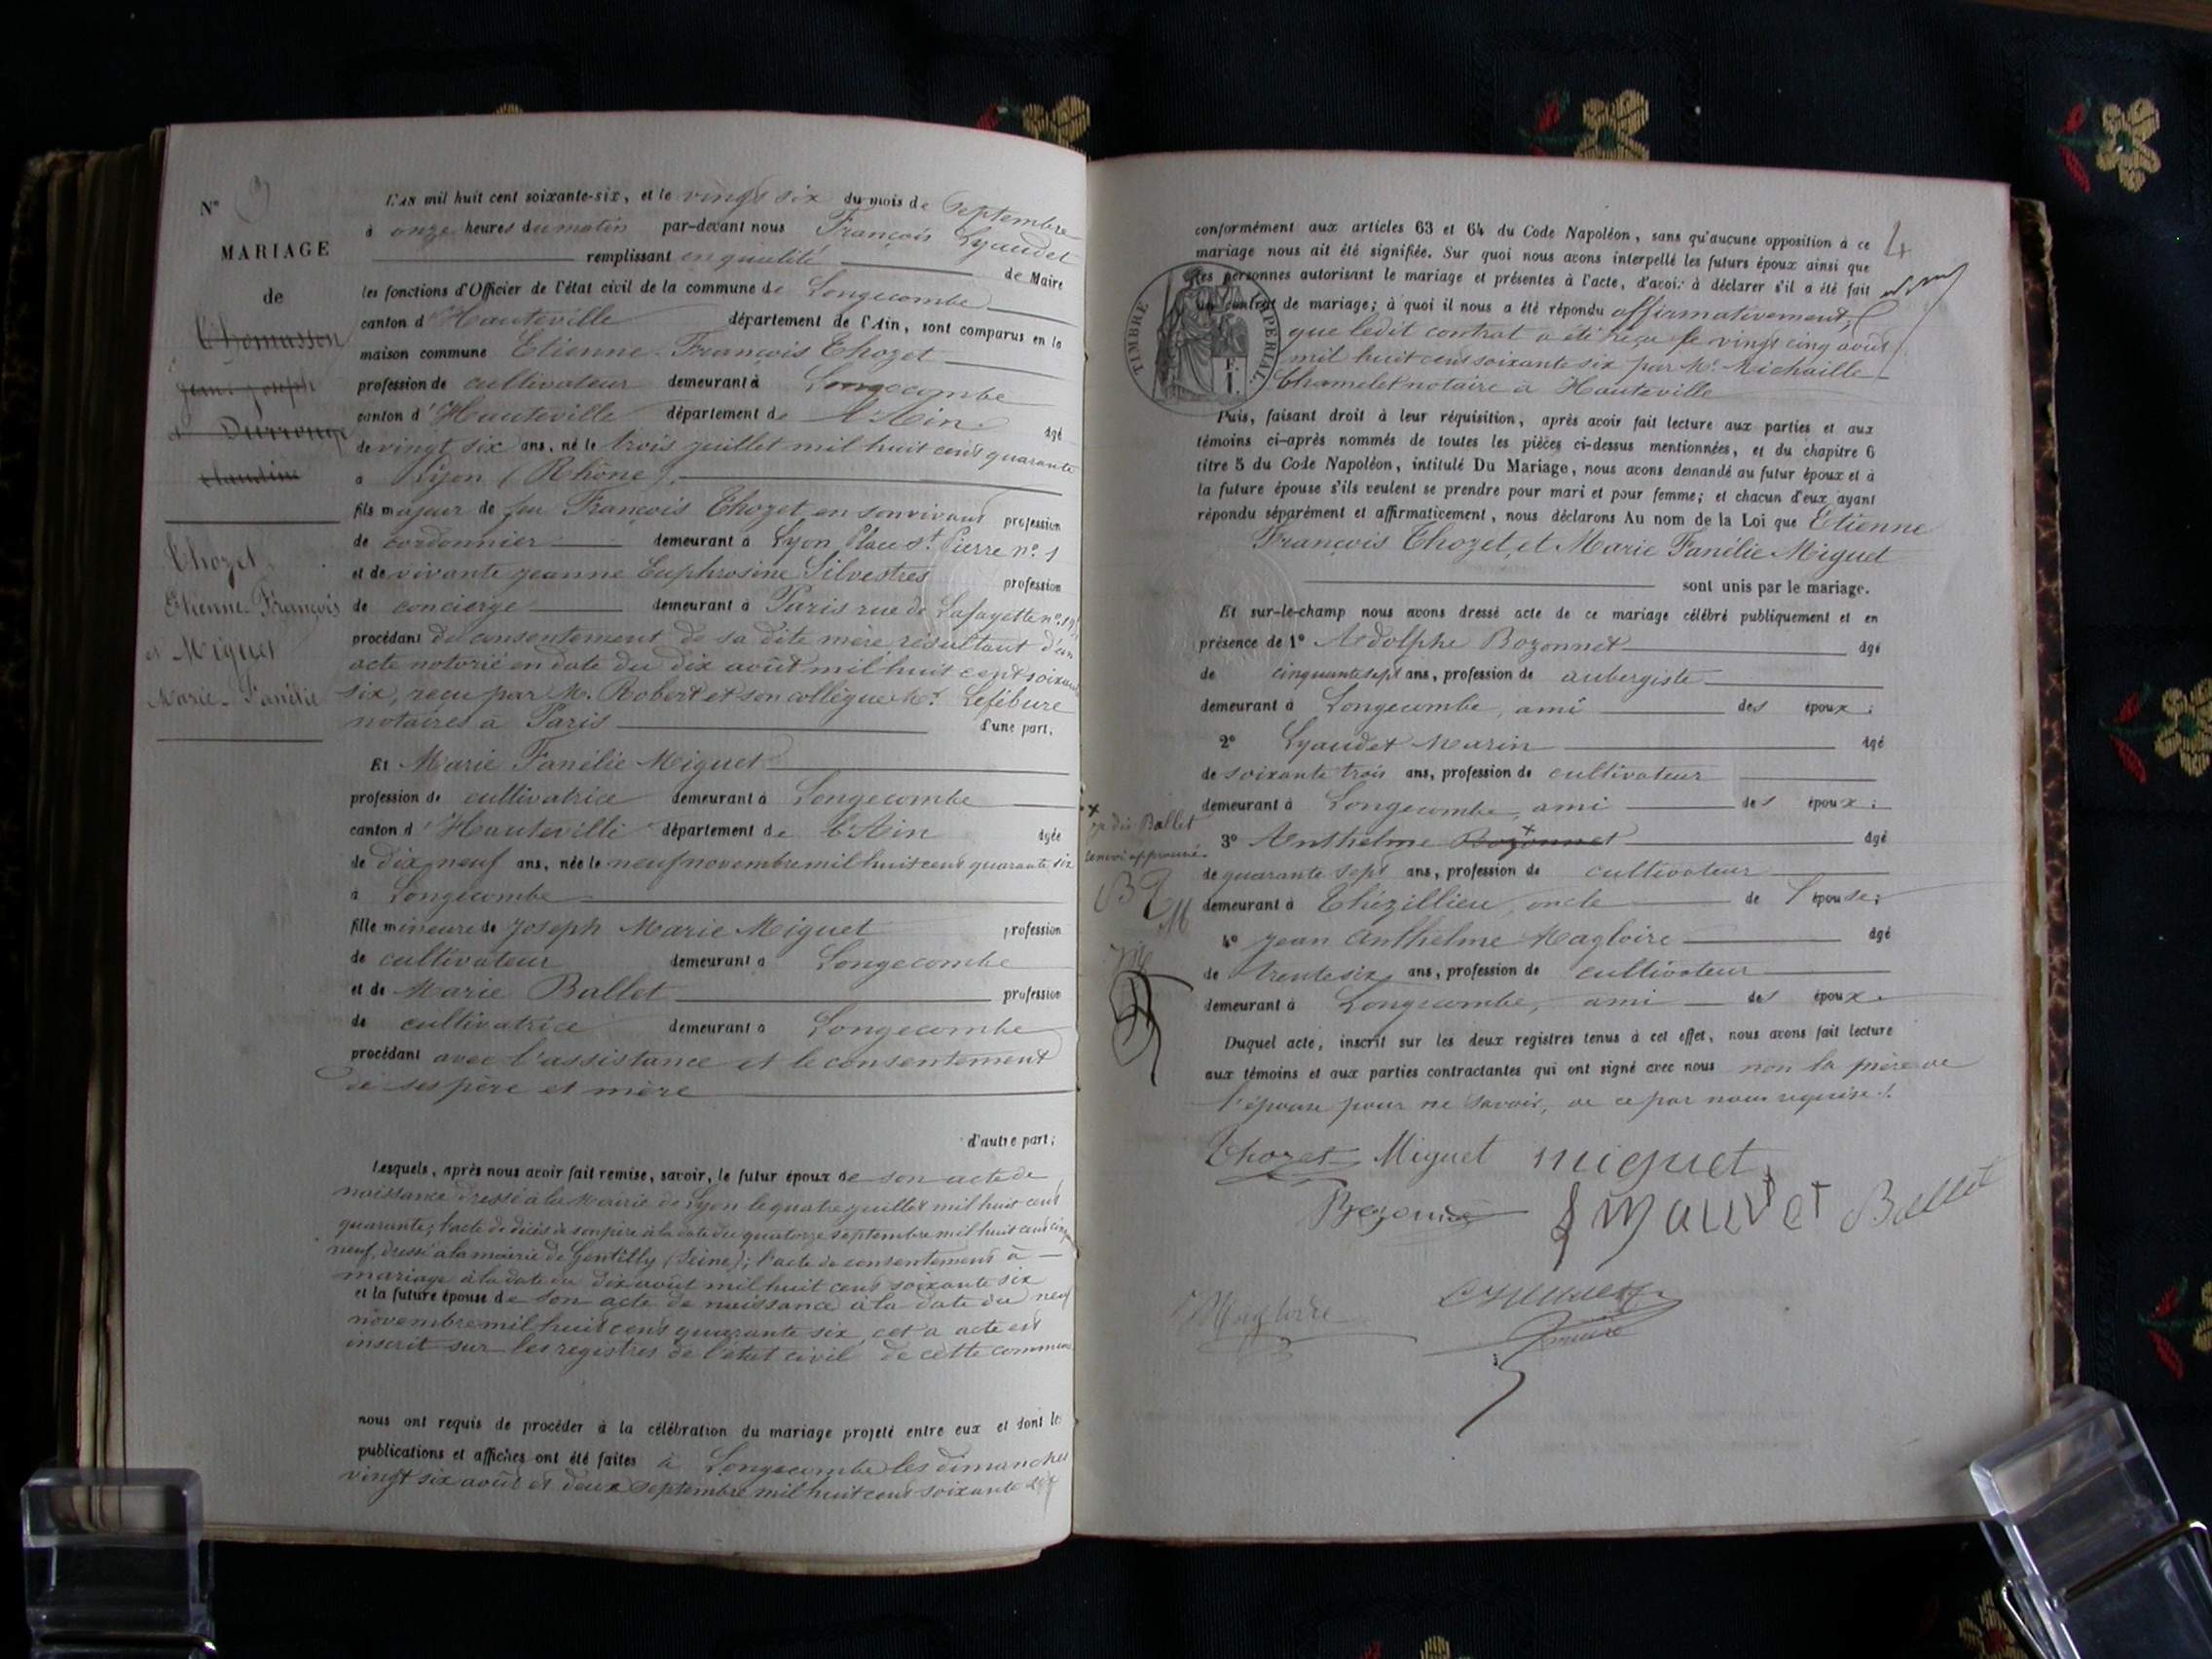 N° 3
MARIAGE
de
Thomasson
Jean-Joseph
et Durrouge
Claudine
Thozet
Etienne-François
et Miguet
Marie-Fanélie
L'AN mil huit cent soixante-six, et le vingt six du mois de Septembre
à onze heures du matin par-devant nous François Lyaudet
remplissant en qualité de Maire
les fonctions d'Officier de l'état civil de la commune de Longecombe
canton d'Hauteville département de l'Ain, sont comparus en la
maison commune Etienne François Thozet
profession de cultivateur demeurant à Longecombe
canton d'Hauteville département de l'Ain âgé
de vingt six ans, né le trois juillet mil huit cent quarante
à Lyon (Rhône),
fils majeur de feu François Thozet en son vivant profession
de cordonnier demeurant à Lyon Place St. Pierre n° 1
et de vivante Jeanne Euphrosine Silvestres profession
de concierge demeurant à Paris rue de Lafayette n°
procédant du consentement de sa dite mère résultant d'un
acte notorié en date du dix août mil huit cent soixante
six, reçu par M. Robert et son collègue Mr. Lefébure
notaires à Paris d'une part,
Et Marie Fanélie Miguet
profession de cultivatrice demeurant à Longecombe
canton d'Hauteville département de l'Ain âgée
de dix neuf ans, née le neuf novembre mil huit cent quarante six
à Longecombe
fille mineure de Joseph Marie Miguet profession
de cultivateur demeurant à Longecombe
et de Marie Ballet profession
de cultivatrice demeurant à Longecombe
procédant avec l'assistance et le consentement
de ses père et mère
d'autre part;
Lesquels, après nous avoir fait remise, savoir, le futur époux de son acte de
naissance dressé à la Mairie de Lyon le quatre juillet mil huit cent
quarante; l'acte de décès de son père à la date du quatorze septembre mil huit cent cinq
neuf, dressé à la mairie de Gentilly (Seine); l'acte de consentement à
mariage à la date du dix août mil huit cent soixante six
et la future épouse de son acte de naissance à la date du neuf
novembre mil huit cent quarante six, cet a acte est
inscrit sur les registres de l'état civil de cette commune
nous ont requis de procéder à la célébration du mariage projeté entre eux et dont les
publications et affiches ont été faites à Longecombe les dimanches
vingt six août et deux septembre mil huit cent soixante six
4
conformément aux articles 63 et 64 du Code Napoléon, sans qu'aucune opposition à ce
mariage nous ait été signifiée. Sur quoi nous avons interpellé les futurs époux ainsi que
les personnes autorisant le mariage et présentes à l'acte, d'avoir à déclarer s'il a été fait
un contrat de mariage; à quoi il nous a été répondu affirmativement,
TIMBRE IMPÉRIAL
F.
1.
que ledit contrat a été reçu le vingt cinq août
mil huit cent soixante six par Mr. Michaille
Chamelet notaire à Hauteville
Puis, faisant droit à leur réquisition, après avoir fait lecture aux parties et aux
témoins ci-après nommés de toutes les pièces ci-dessus mentionnées, et du chapitre 6
titre 5 du Code Napoléon, intitulé Du Mariage, nous avons demandé au futur époux et à
la future épouse s'ils veulent se prendre pour mari et pour femme; et chacun d'eux ayant
répondu séparément et affirmativement, nous déclarons Au nom de la Loi que Etienne
François Thozet, et Marie Fanélie Miguet
sont unis par le mariage.
Et sur-le-champ nous avons dressé acte de ce mariage célébré publiquement et en
présence de 1° Adolphe Bozonnet âgé
de cinquante sept ans, profession de aubergiste
demeurant à Longecombe, ami des époux;
2° Lyaudet Marin âgé
de soixante trois ans, profession de cultivateur
demeurant à Longecombe, ami des époux;
+ je dis Ballet
renvoi approuvé
3° Anthelme Bozonnet + âgé
de quarante sept ans, profession de cultivateur
demeurant à Thézillieu, oncle de l'épouse;
4° Jean Anthelme Magloire âgé
de trente six ans, profession de cultivateur
demeurant à Longecombe, ami des époux.
Duquel acte, inscrit sur les deux registres tenus à cet effet, nous avons fait lecture
aux témoins et aux parties contractantes qui ont signé avec nous non la mère de
l'épouse pour ne savoir, de ce par nous requise.
Thozet Miguet miguet
Bozonnet Ballet
Magloire Lyaudet
maire